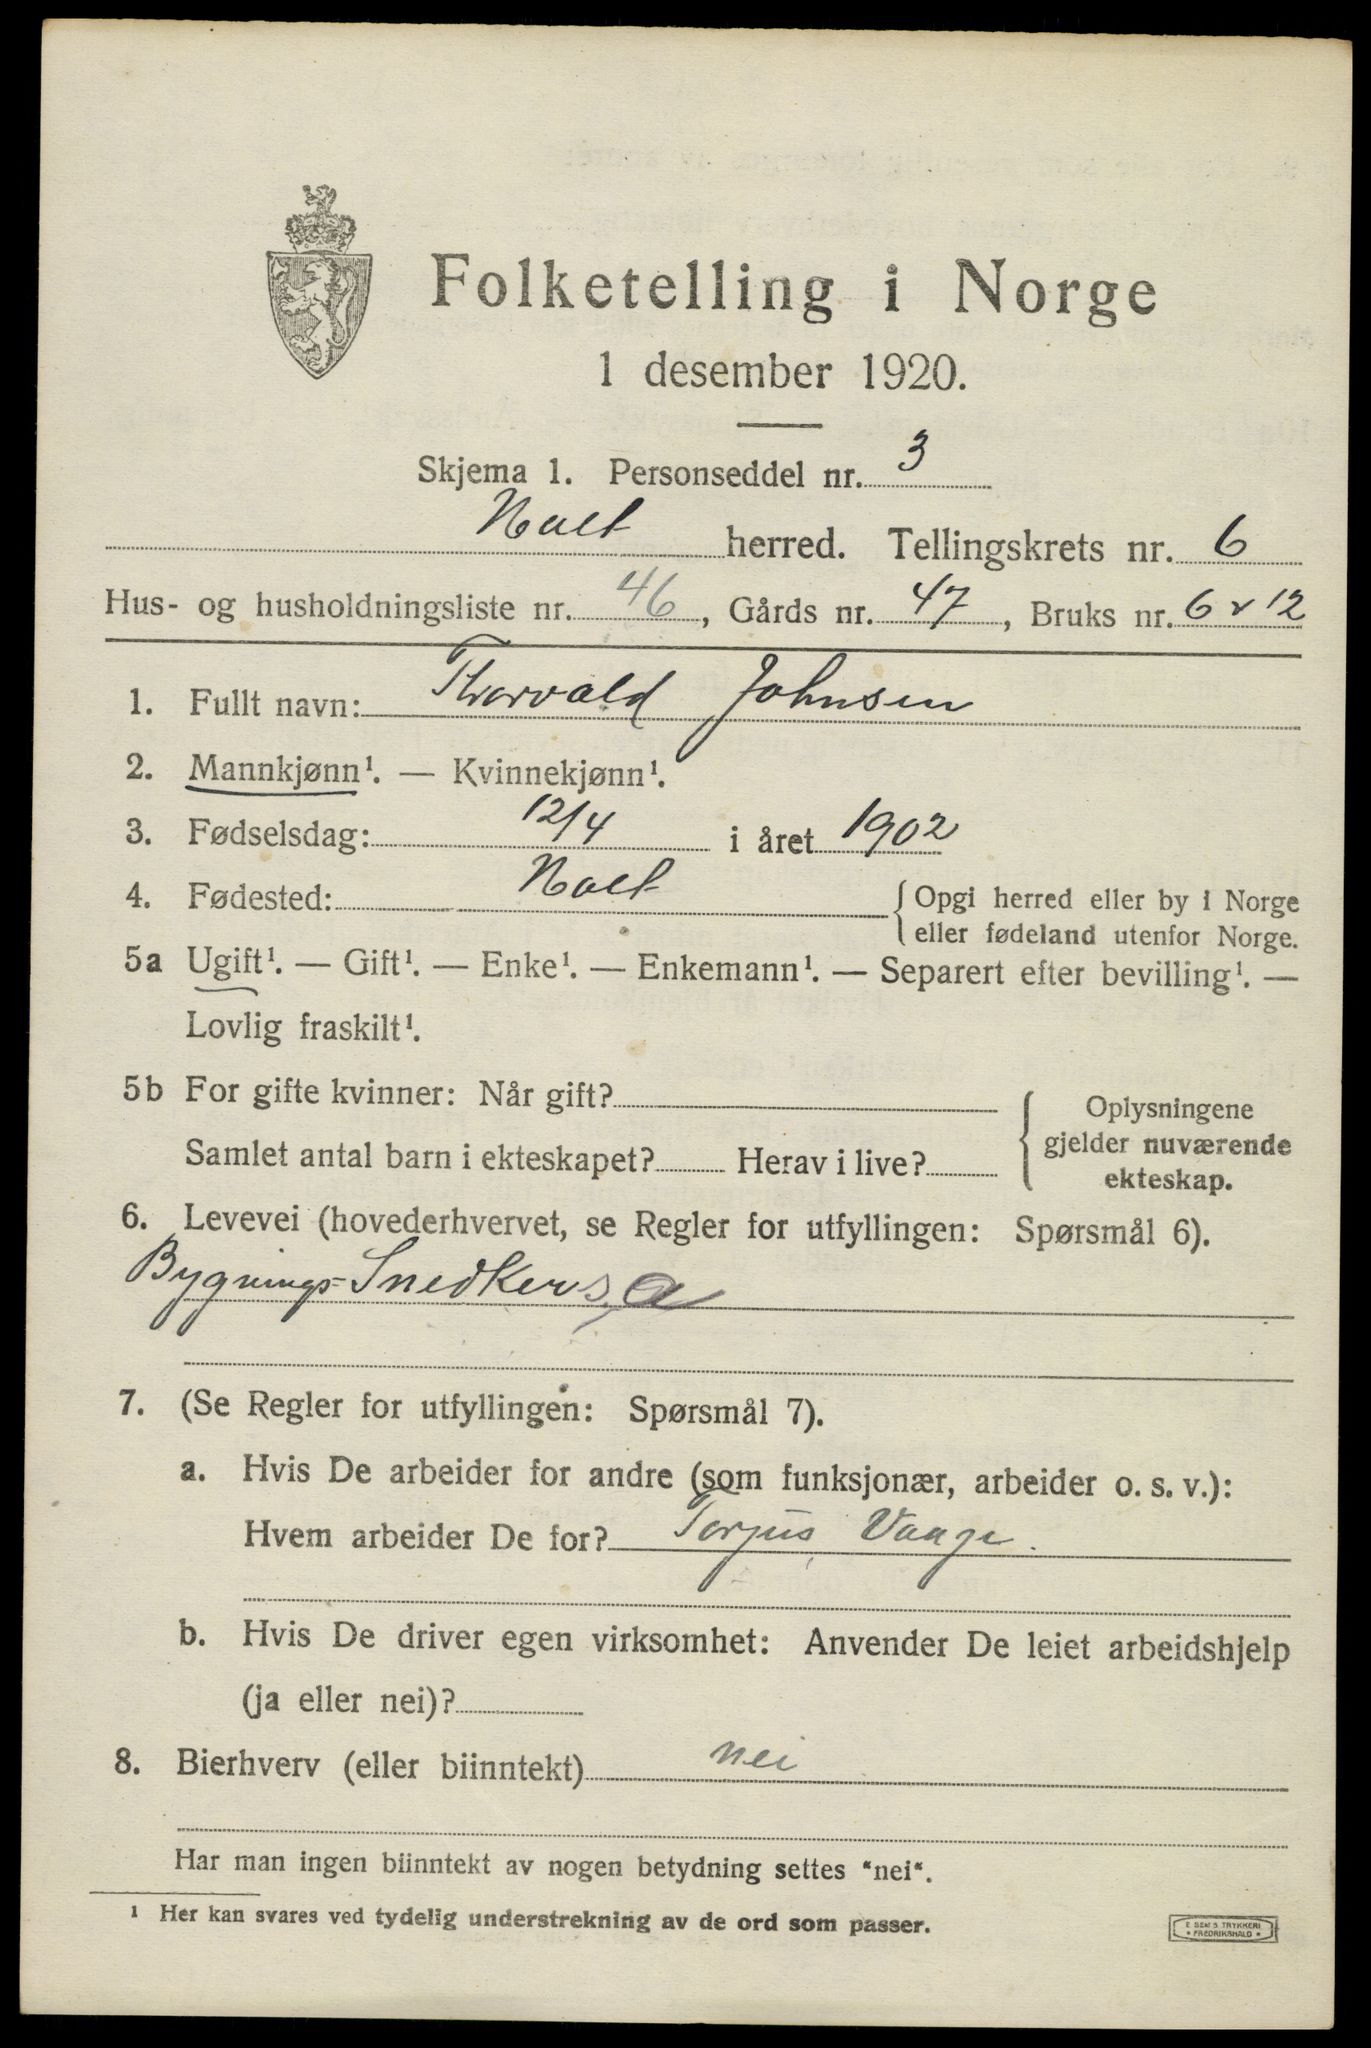 Folketelling i Norge
1 desember 1920.
Skjema 1. Personseddel nr. 3
Holt herred. Tellingskrets nr. 6
Hus- og husholdningsliste nr. 46, Gårds nr. 47, Bruks nr. 6 & 12
1. Fullt navn: Thorvald Johnsen
2. Mannkjønn¹. — Kvinnekjønn¹.
3. Fødselsdag: 12/4 i året 1902
4. Fødested: Holt { Opgi herred eller by i Norge
eller fødeland utenfor Norge.
5a Ugift¹. — Gift¹. — Enke¹. — Enkemann¹. — Separert efter bevilling¹. —
Lovlig fraskilt¹.
5b For gifte kvinner: Når gift?
Samlet antal barn i ekteskapet? Herav i live?
{ Oplysningene
gjelder nuværende
ekteskap.
6. Levevei (hovederhvervet, se Regler for utfyllingen: Spørsmål 6).
Bygnings-Snedker s, a
7. (Se Regler for utfyllingen: Spørsmål 7).
a. Hvis De arbeider for andre (som funksjonær, arbeider o. s. v.):
Hvem arbeider De for? Torjus Vaage.
b. Hvis De driver egen virksomhet: Anvender De leiet arbeidshjelp
(ja eller nei)?
8. Bierhverv (eller biinntekt) nei
Har man ingen biinntekt av nogen betydning settes "nei".
1 Her kan svares ved tydelig understrekning av de ord som passer.
E SEM'S TRYKKERI
* FREDRIKSHALD *